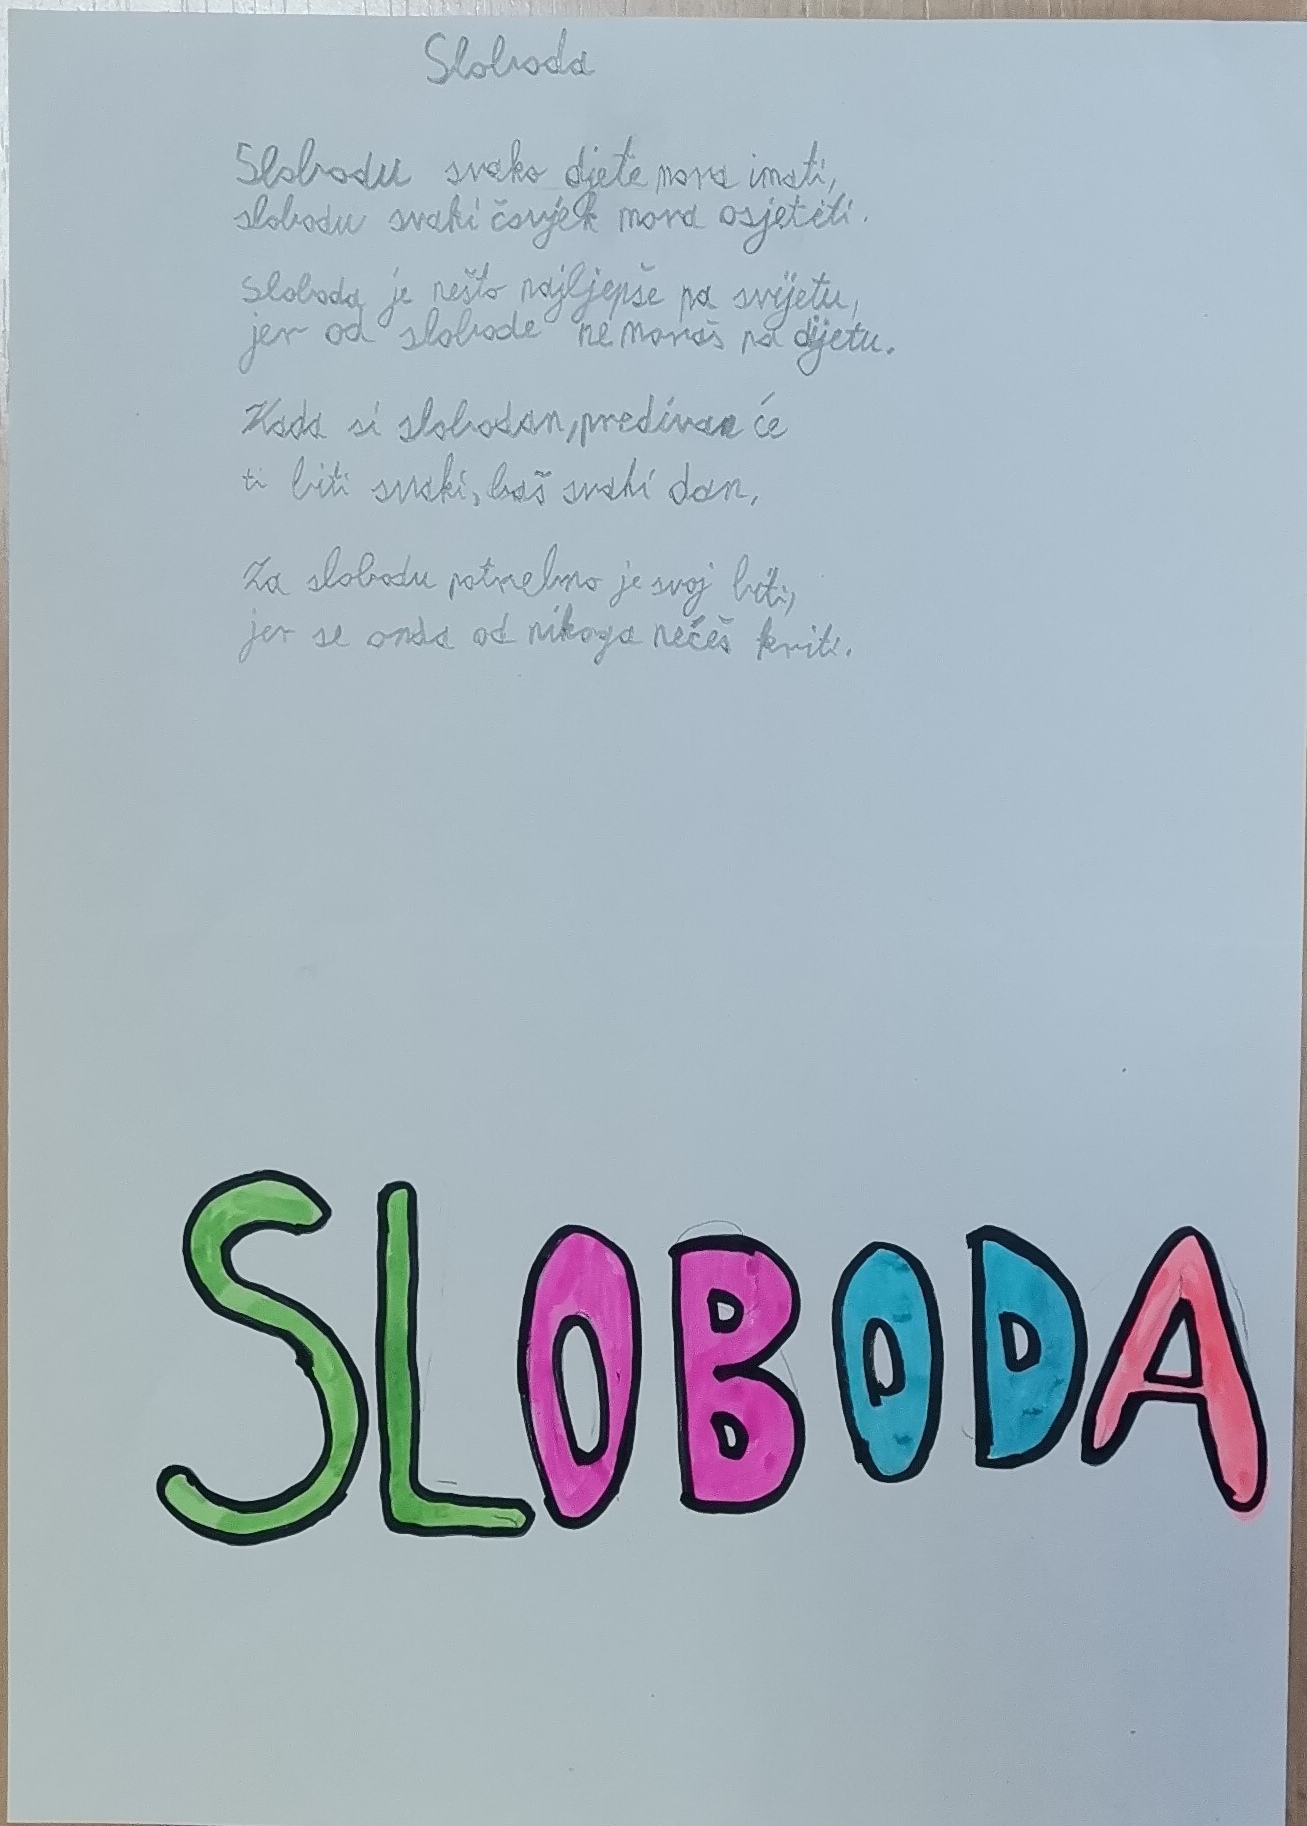 Sloboda
Slobodu svako djete mora imati,
slobodu svaki čovjek mora osjetiti.
Sloboda je nešto najljepše na svijetu,
jer od slobode ne moraš na dijetu.
Kada si slobodan, predivan će
ti biti svaki, baš svaki dan.
Za slobodu potrebno je svoj biti,
jer se onda od nikoga nećeš kriti.
SLOBODA